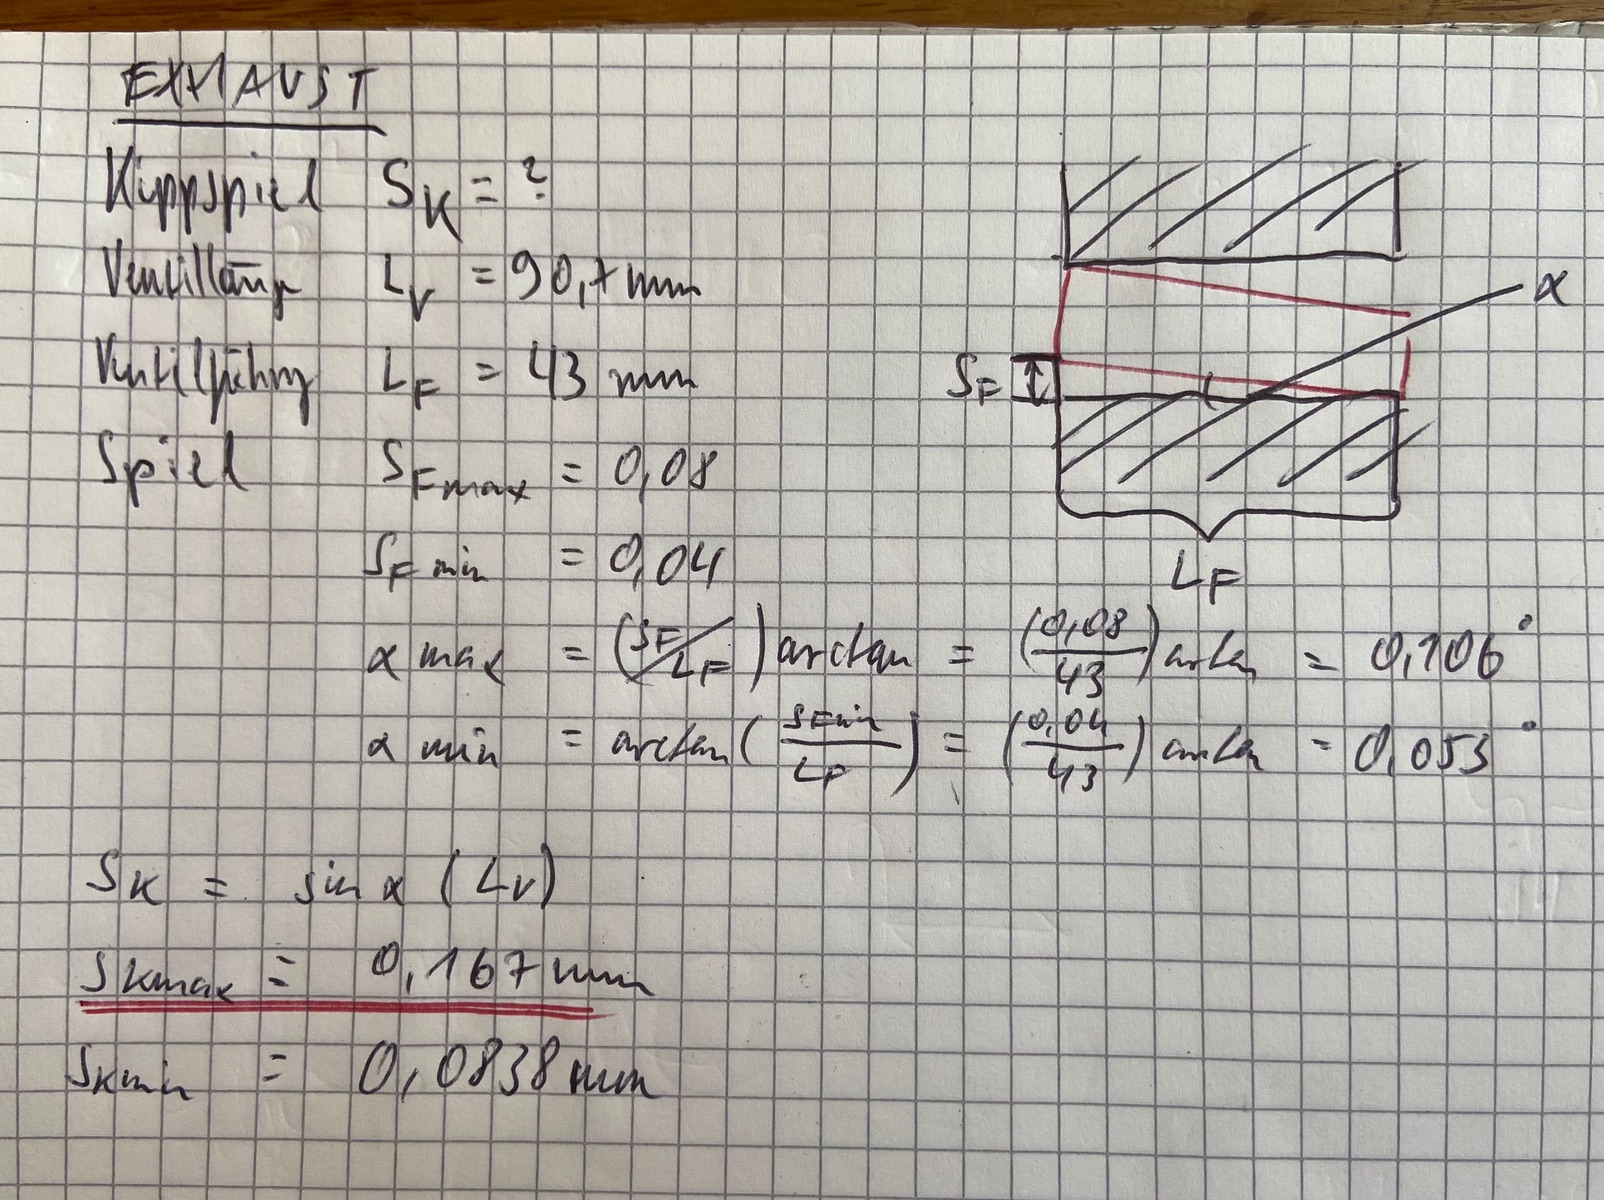 EXHAUST
Kippspiel SK = ?
Ventillänge LV = 90,7 mm
Ventilführung LF = 43 mm
Spiel SFmax = 0,08
SFmin = 0,04
α max = (SF/LF) arctan = (0,08/43) arctan = 0,106°
α min = arctan(SFmin/LF) = (0,04/43) arctan = 0,053°
SK = sin α (LV)
SKmax = 0,167 mm
SKmin = 0,0838 mm
α
SF
LF